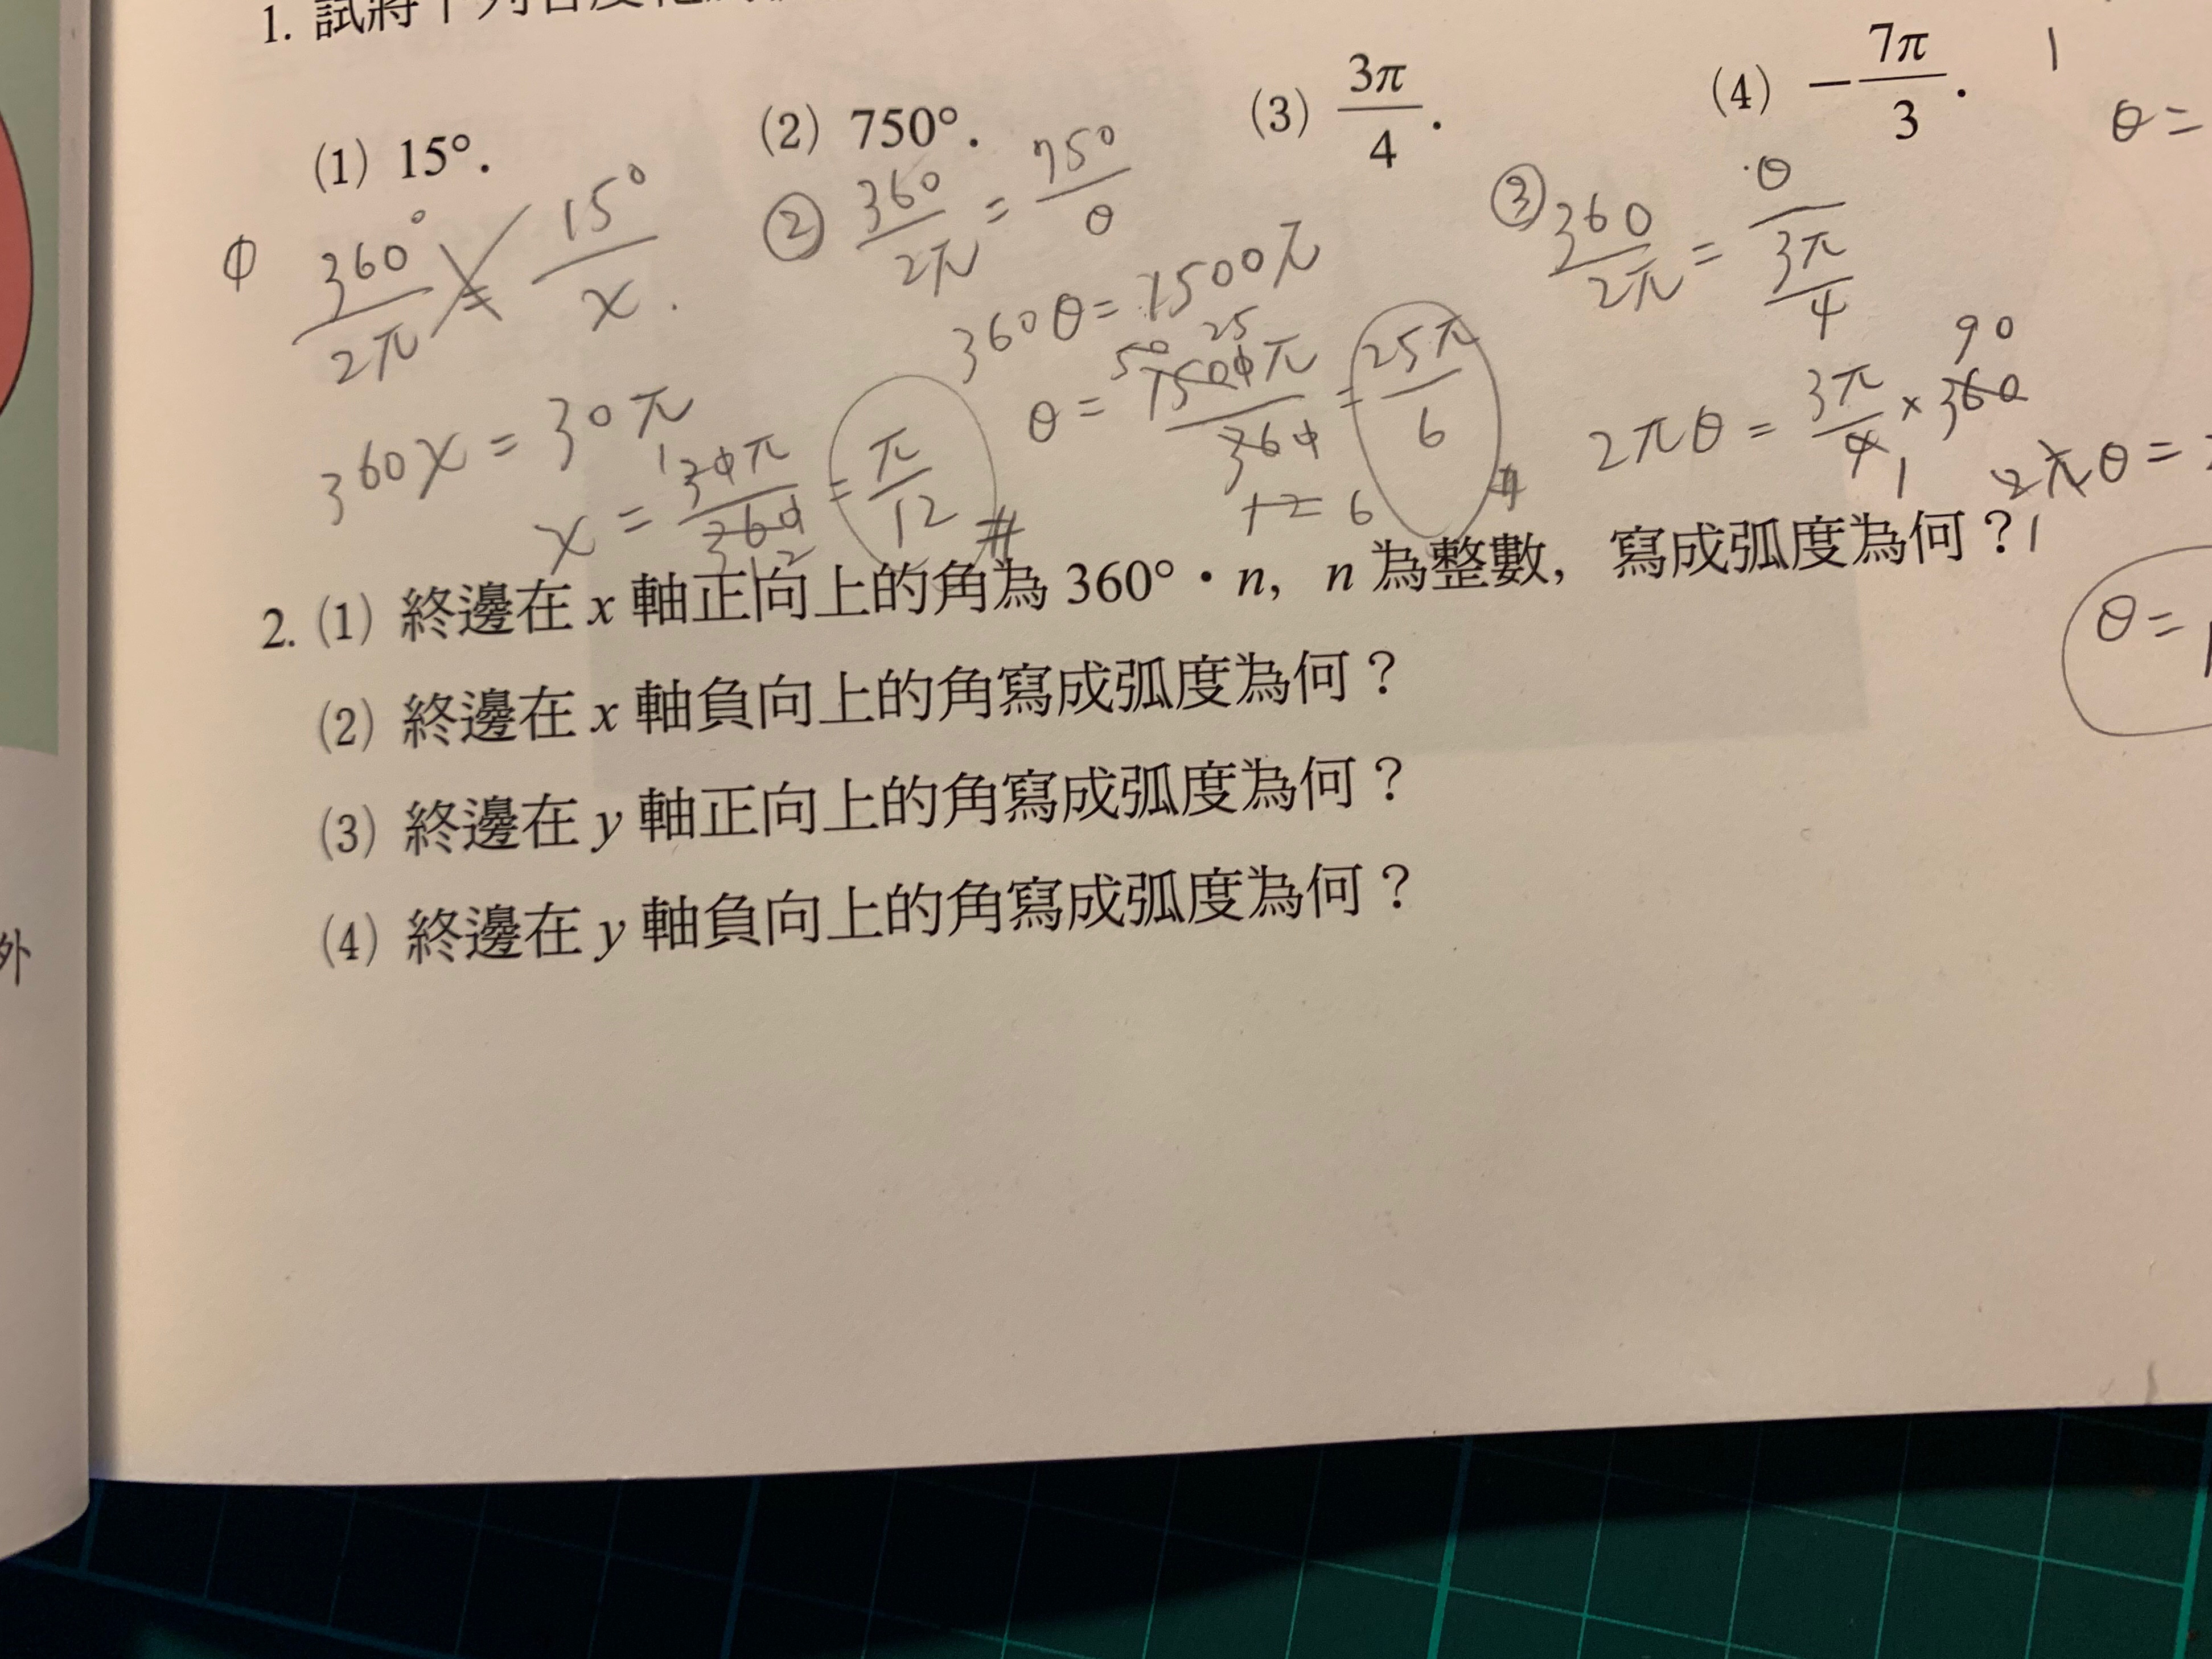 1. 試將下列各度化
(1) 15°. (2) 750°. (3) 3π/4. (4) −7π/3.
① 360°/2π = 15°/x.
360x = 30π
x = 30π/360 = π/12 #
1 12
② 360/2π = 750/θ
360θ = 1500π
50 25
θ = 1500π/360 = 25π/6 #
12 = 6
③ 360/2π = θ/(3π/4)
90
2πθ = 3π/4 × 360
1
2πθ =
1
1
θ =
θ =
2. (1) 終邊在 x 軸正向上的角為 360°・n, n 為整數, 寫成弧度為何?
(2) 終邊在 x 軸負向上的角寫成弧度為何?
(3) 終邊在 y 軸正向上的角寫成弧度為何?
(4) 終邊在 y 軸負向上的角寫成弧度為何?
外